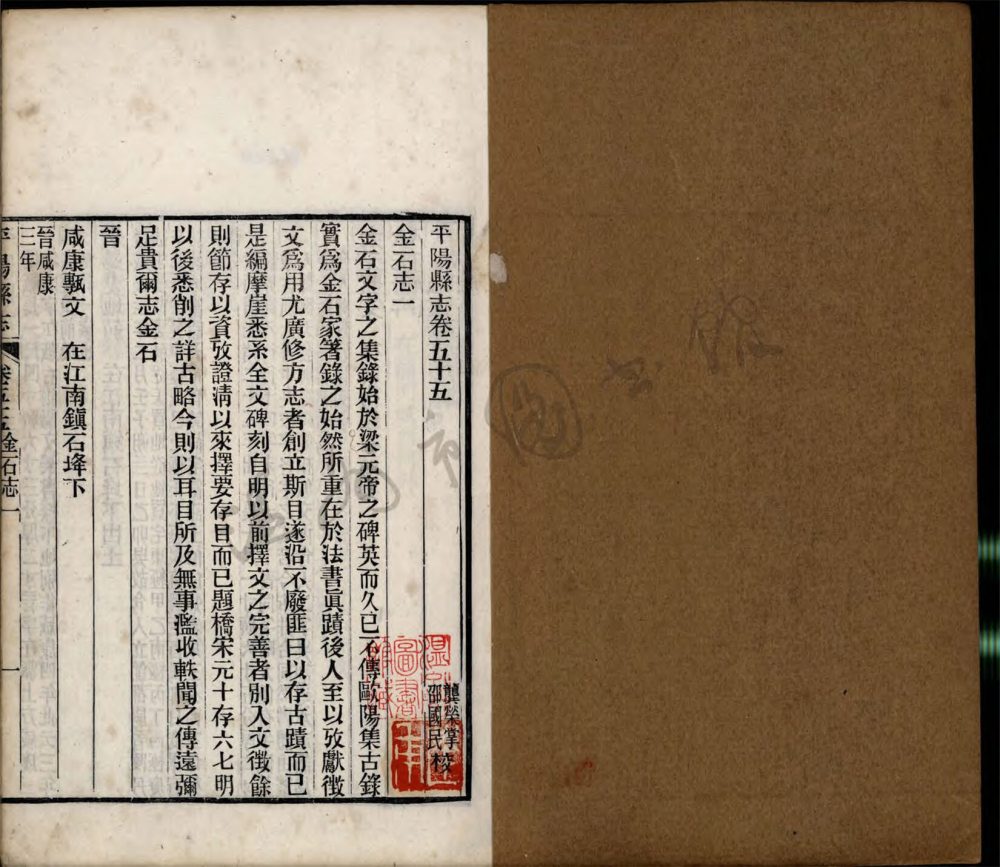 平陽縣志卷五十五
龔榮掌
邵國民校
金石志一
金石文字之集錄始於梁元帝之碑英而久已不傳歐陽集古錄
實爲金石家箸錄之始然所重在於法書眞蹟後人至以攷獻徵
文爲用尤廣修方志者創立斯目遂沿不廢匪曰以存古蹟而已
是編摩崖悉系全文碑刻自明以前擇文之完善者別入文徵餘
則節存以資攷證淸以來擇要存目而已題橋宋元十存六七明
以後悉削之詳古略今則以耳目所及無事濫收軼聞之傳遠彌
足貴爾志金石
晉
咸康甎文　在江南鎭石垟下
晉咸康
三年
平陽縣志
卷五十五金石志一
一